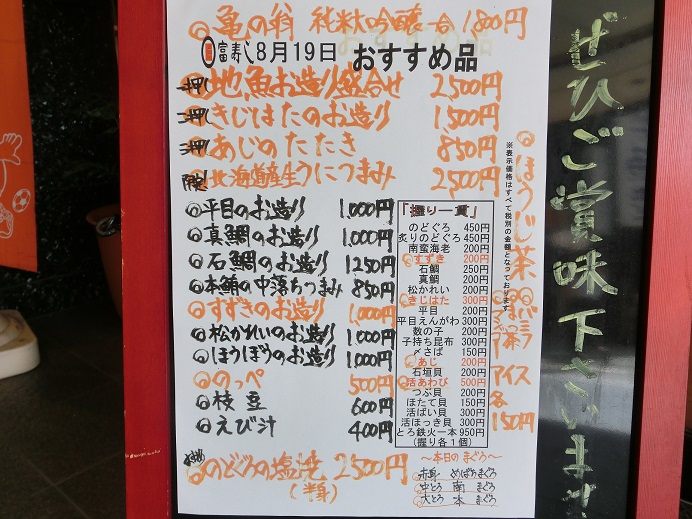 ◎亀の翁 純米大吟醸一合 1800円
富寿し8月19日 おすすめ品
一押 ◎地魚お造り盛合せ 2500円
二押 ◎きじはたのお造り 1500円
三押 ◎あじのたたき 850円
限定 ◎北海道産生うにつまみ 2500円
◎平目のお造り 1,000円
◎真鯛のお造り 1,000円
◎石鯛のお造り 1250円
◎本鮪の中落ちつまみ 850円
◎すずきのお造り 1,000円
◎松かれいのお造り 1,000円
◎ほうぼうのお造り 1,000円
◎のっぺ 500円
◎枝豆 600円
◎えび汁 400円
◎のどぐろの塩焼 2500円
(半身)
「握り一貫」
のどぐろ 450円
炙りのどぐろ 450円
南蛮海老 200円
◎すずき 200円
石鯛 250円
真鯛 200円
松かれい 200円
◎きじはた 300円
平目 200円
平目えんがわ 300円
数の子 200円
子持ち昆布 300円
〆さば 150円
◎あじ 200円
石垣貝 200円
◎活あわび 500円
つぶ貝 200円
ほたて貝 150円
活ばい貝 300円
活ほっき貝 300円
とろ鉄火一本 950円
(握り各1個)
～本日のまぐろ～
赤身 めばちまぐろ
中とろ 南まぐろ
大とろ 本まぐろ
※表示価格はすべて税別の金額となっております
◎ほうじ茶
アイス
各
150円
ぜひご賞味下さいませ